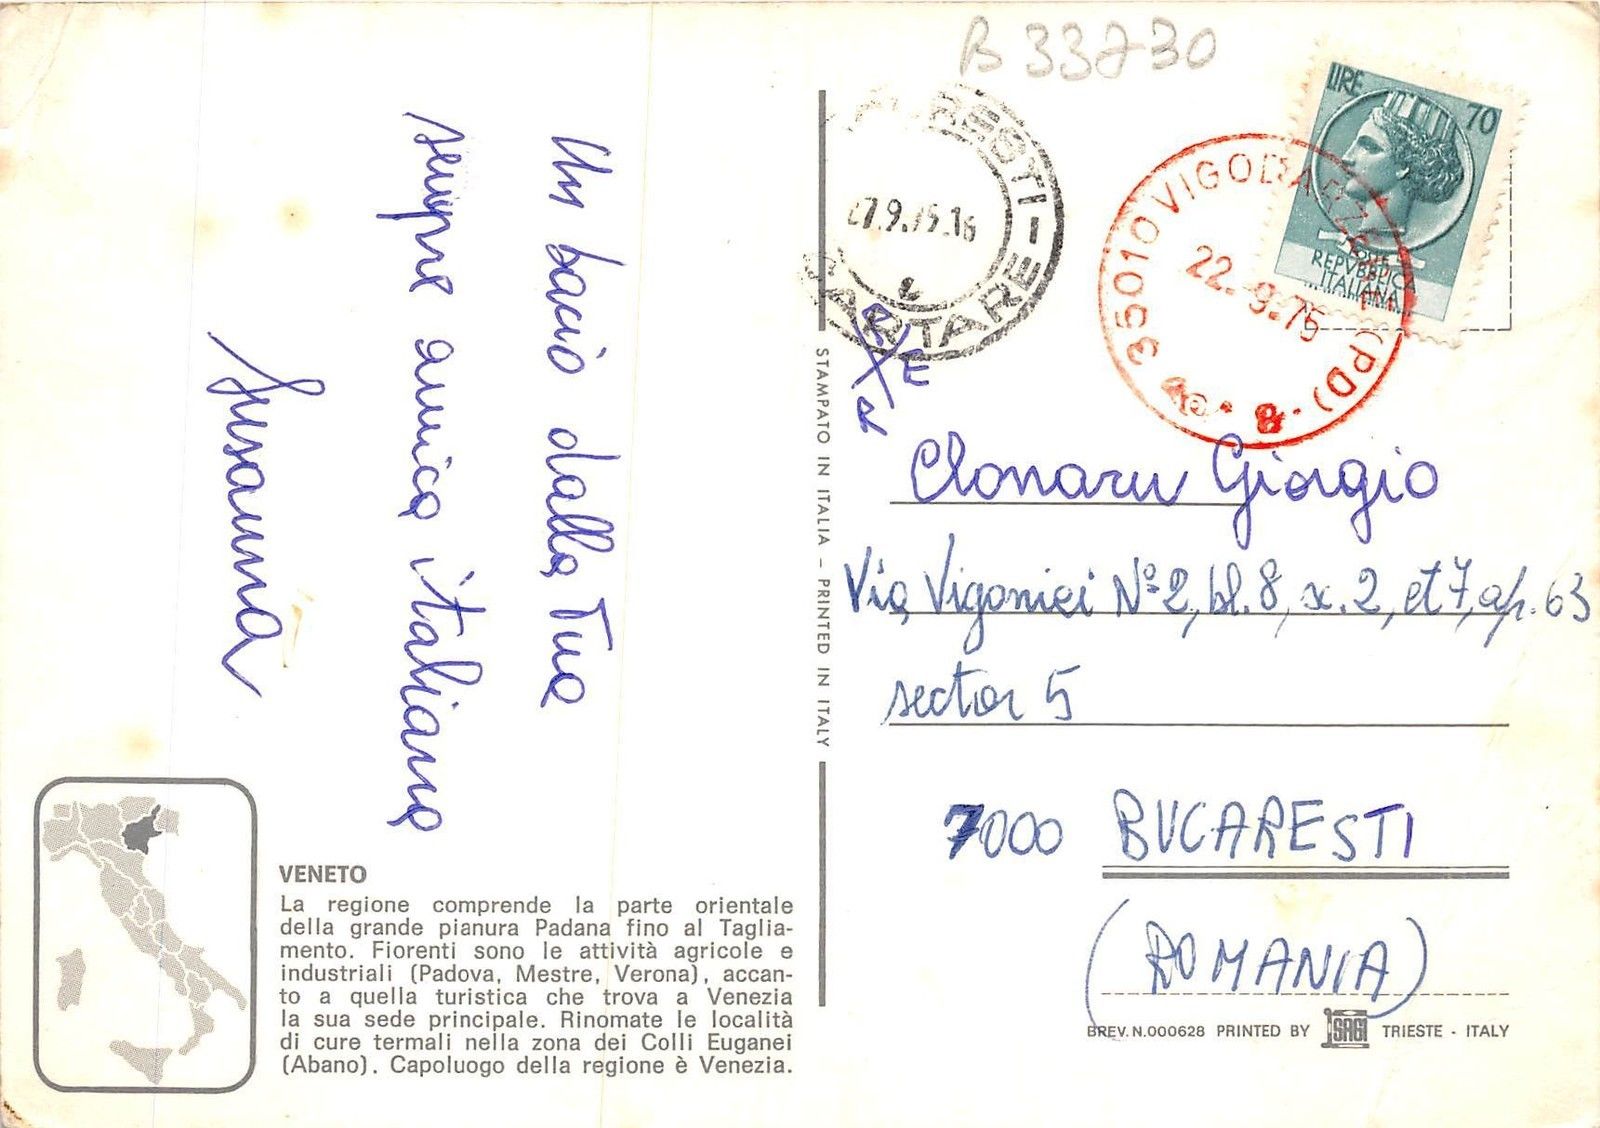 B 33730
LIRE 70
REPVBBLICA
ITALIANA
35010 VIGODARZERE (PD)
22.-9-75
8
27.9.75.16
CARTARE
Un bacio dalla Tua
sempre amica italiana
Susanna
STAMPATO IN ITALIA – PRINTED IN ITALY
Clonaru Giorgio
Via Vigoniei N° 2, bl. 8, sc. 2, et 7, ap. 63
sector 5
7000 BUCARESTI
(ROMANIA)
VENETO
La regione comprende la parte orientale
della grande pianura Padana fino al Taglia-
mento. Fiorenti sono le attività agricole e
industriali (Padova, Mestre, Verona), accan-
to a quella turistica che trova a Venezia
la sua sede principale. Rinomate le località
di cure termali nella zona dei Colli Euganei
(Abano). Capoluogo della regione è Venezia.
BREV. N. 000628 PRINTED BY SAGI TRIESTE - ITALY